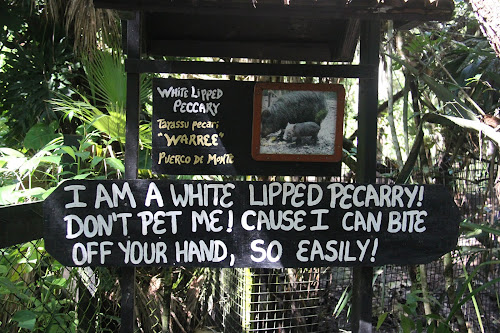 WHITE LIPPED
PECCARY
Tarassu pecari
"WARREE"
PUERCO DE MONTE
I AM A WHITE LIPPED PECARRY!
DON'T PET ME! CAUSE I CAN BITE
OFF YOUR HAND, SO EASILY!